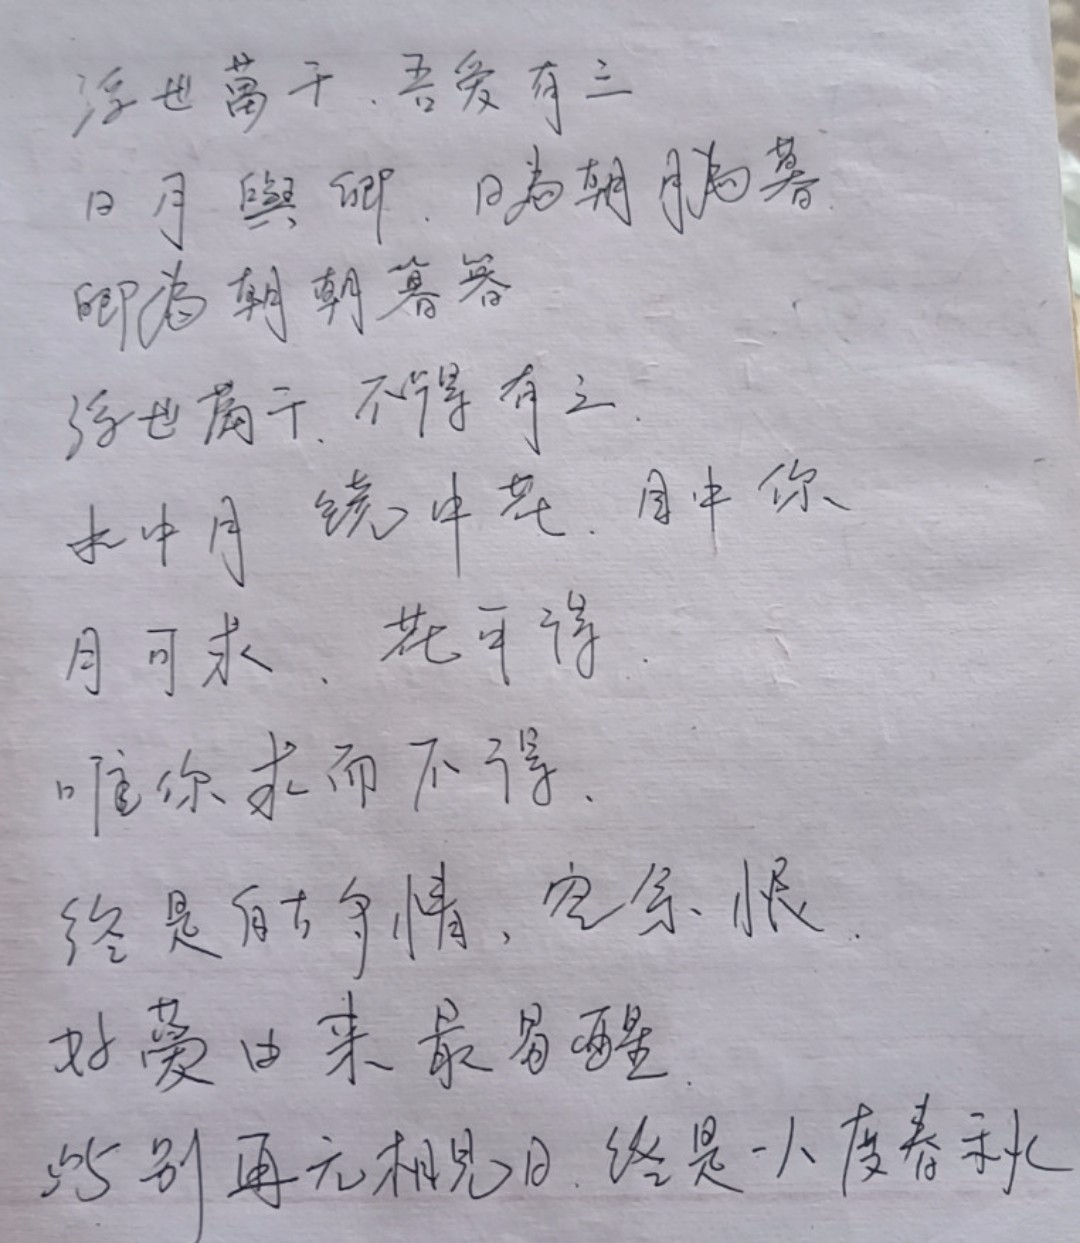 浮世萬千、吾爱有三
日月與卿、日為朝月為暮
卿為朝朝暮暮
浮世萬千、不得有三.
水中月 镜中花、目中你
月可求、花可得.
唯你求而不得、
终是自古多情、空余恨.
好夢由来最易醒.
此别再无相見日、终是一人度春秋